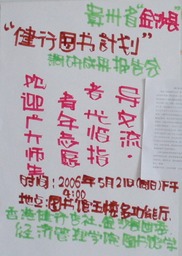 贵州省金沙县
“健行图书计划”
调研成果报告会
欢迎广大师生
青年志愿
者光临指
导交流.
时间: 2006年5月21日(周日)下午
4:00
地点: 图书馆五楼多功能厅
香港健行
经济管理学院图书馆学